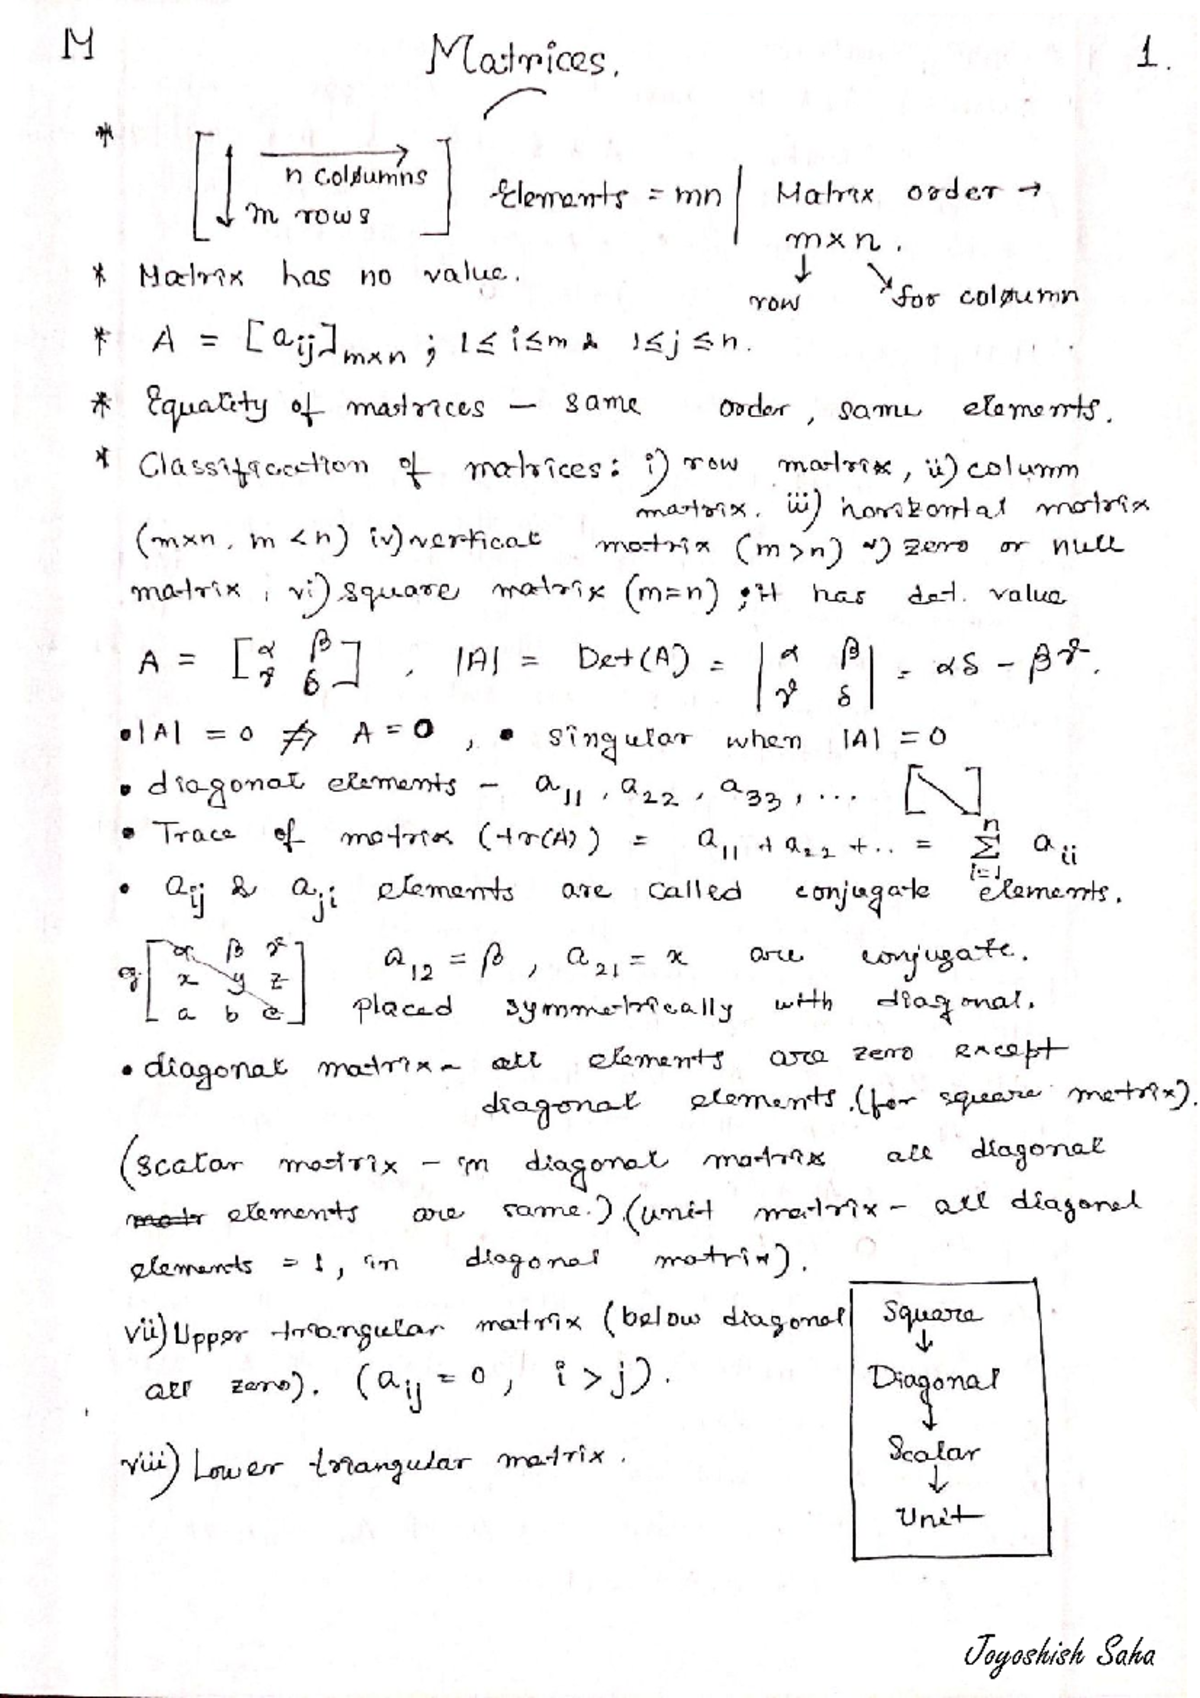 M Matrices. 1.
* [ n columns
m rows ] Elements = mn | Matrix order →
m×n.
* Matrix has no value. row for column
* A = [aij]m×n ; 1≤i≤m & 1≤j≤n.
* Equality of matrices – same order, same elements.
* Classification of matrices: i) row matrix, ii) column
matrix. iii) horizontal matrix
(m×n, m<n) iv) vertical matrix (m>n) v) zero or null
matrix, vi) square matrix (m=n); it has det. value
A = [α β γ δ], |A| = Det(A) = |α β γ δ| = αδ – βγ.
• |A| = 0 ⇏ A = 0, • singular when |A| = 0
• diagonal elements – a11, a22, a33, ... [\]
• Trace of matrix (tr(A)) = a11 + a22 + .. = n Σ i=1 aii
• aij & aji elements are called conjugate elements.
eg. [α β γ x y z a b c] a12 = β, a21 = x are conjugate.
placed symmetrically with diagonal.
• diagonal matrix – all elements are zero except
diagonal elements. (for square matrix).
(scalar matrix – in diagonal matrix all diagonal
matr elements are same.) (unit matrix – all diagonal
elements = 1, in diagonal matrix).
vii) Upper triangular matrix (below diagonal
all zero). (aij = 0, i > j).
viii) Lower triangular matrix.
Square
↓
Diagonal
↓
Scalar
↓
Unit
Joyoshish Saha